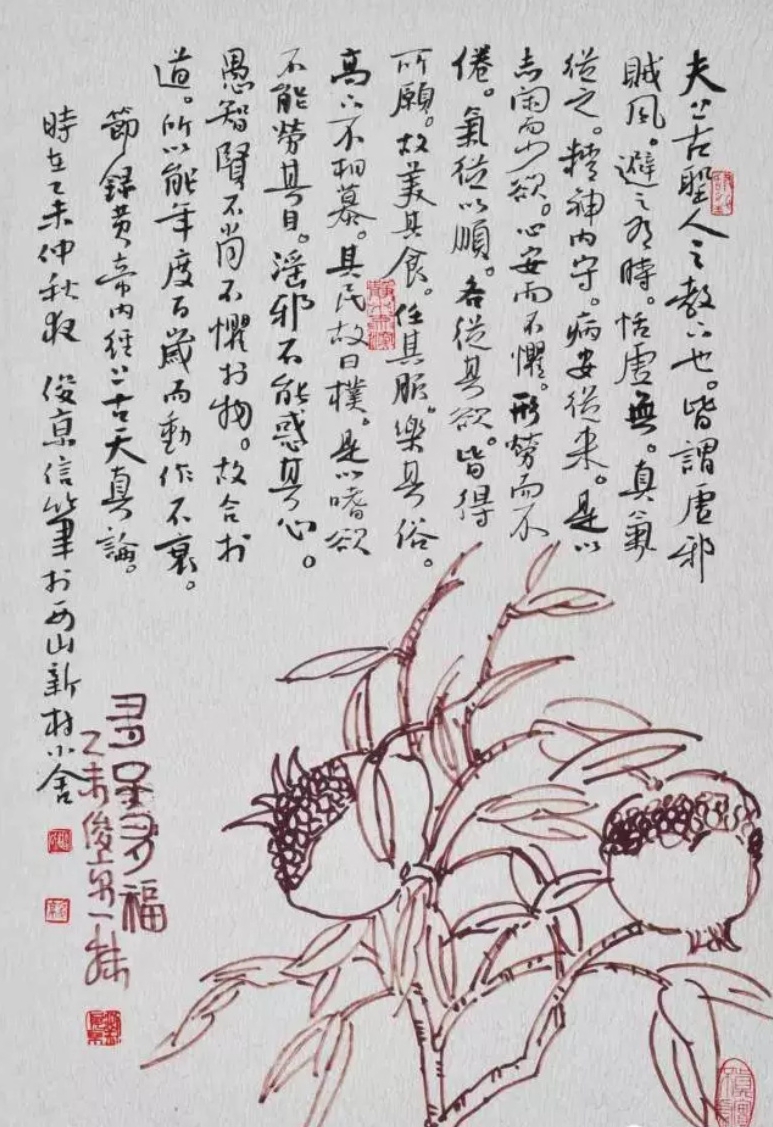 夫上古聖人之教下也。皆謂虛邪
賊風。避之有時。恬虛無。真氣
從之。精神内守。病安從来。是以
志闲而少欲。心安而不懼。形勞而不
倦。氣從以順。各從其欲。皆得
所願。故美其食。任其服。樂其俗。
高下不相慕。其民故曰樸。是以嗜欲
不能勞其目。淫邪不能惑其心。
愚智賢不肖不懼於物。故合於
道。所以能年度百歲而動作不衰。
節録黄帝内經上古天真論。
時在乙未仲秋夜 俊京信筆於西山新村小舍
多子多福
乙未俊京一抹